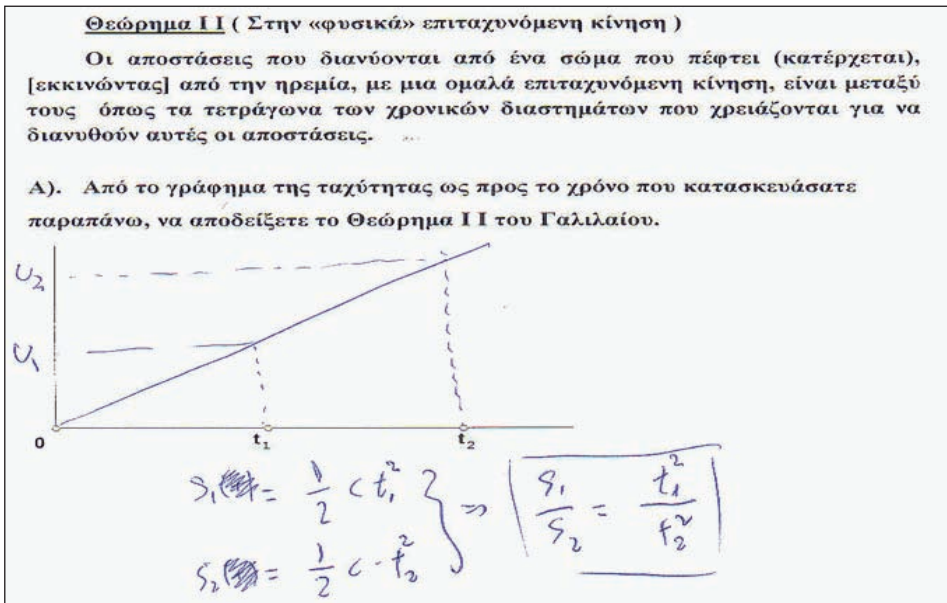 Θεώρημα Ι Ι ( Στην «φυσικά» επιταχυνόμενη κίνηση )
Οι αποστάσεις που διανύονται από ένα σώμα που πέφτει (κατέρχεται),
[εκκινώντας] από την ηρεμία, με μια ομαλά επιταχυνόμενη κίνηση, είναι μεταξύ
τους όπως τα τετράγωνα των χρονικών διαστημάτων που χρειάζονται για να
διανυθούν αυτές οι αποστάσεις.
Α). Από το γράφημα της ταχύτητας ως προς το χρόνο που κατασκευάσατε
παραπάνω, να αποδείξετε το Θεώρημα Ι Ι του Γαλιλαίου.
υ₂
υ₁
0 t₁ t₂
S₁ = 1/2 c t₁² } ⇒ S₁/S₂ = t₁²/t₂²
S₂ = 1/2 c · t₂²